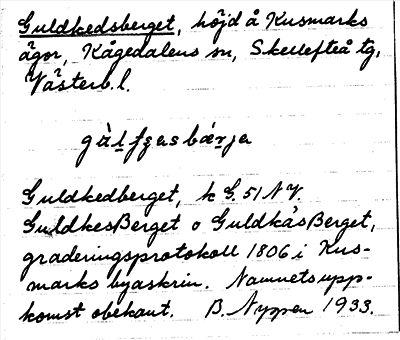 Guldkedsberget, höjd å Kusmarks
ägor, Kågedalens sn, Skellefteå tg,
Västerb. l.
Guldkedberget, k G. 51 NV.
GuldkesBerget o GuldkåsBerget,
graderingsprotokoll 1806 i Kus-
marks byaskrin. Namnets upp-
komst obekant. B. Nyppen 1933.